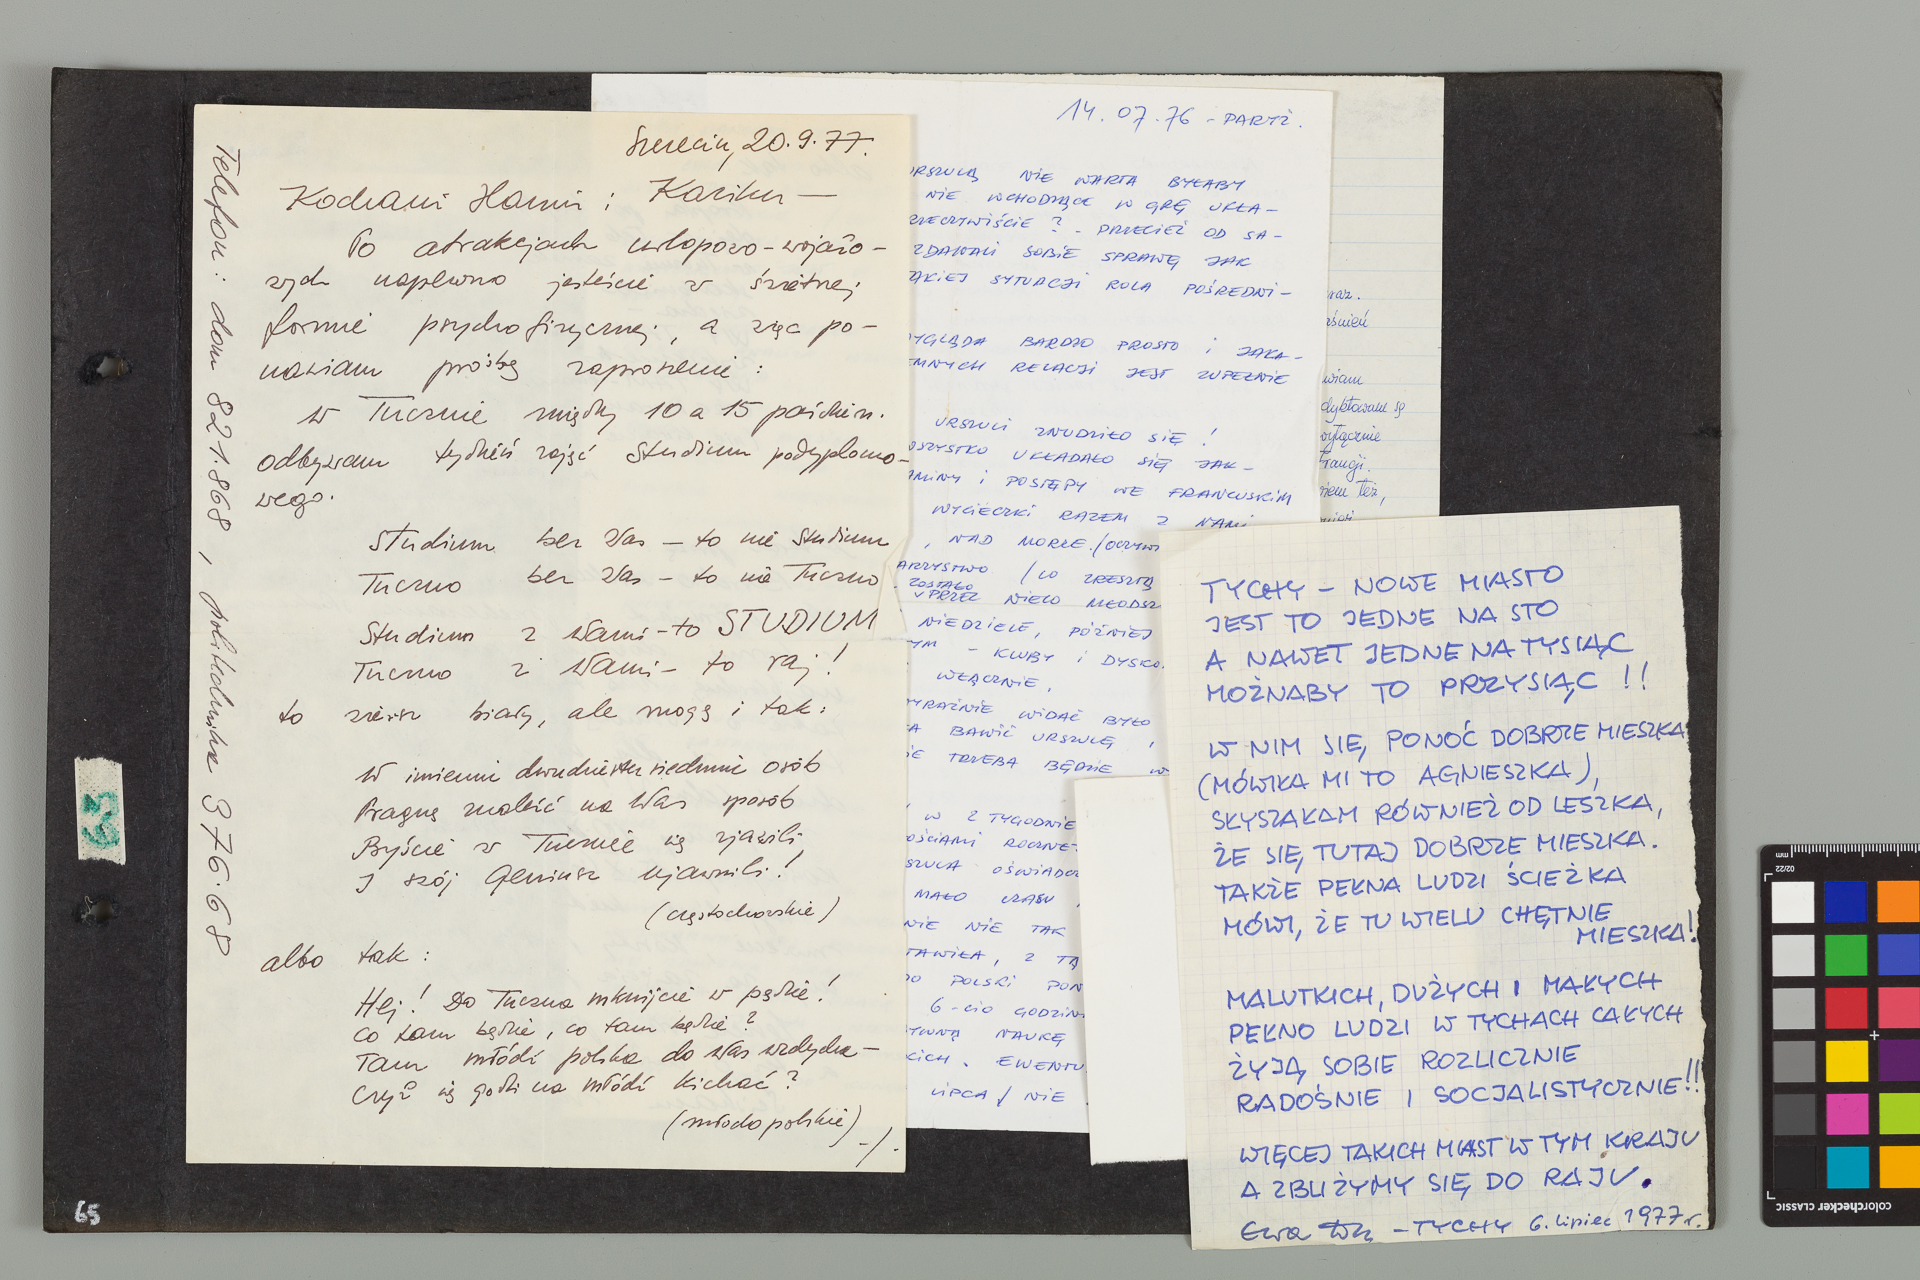 Szczecin, 20.9.77.
Kochani Hanni i Kaziku —
Po atrakcjach urlopowo-wojażo-
wych napewno jesteście w świetnej
formie psychofizycznej, a więc po-
nawiam prośbę zaproszenie:
w Tucznie między 10 a 15 paździer.
odbywam tydzień zajęć Studium podyplomo-
wego.
Studium bez Was — to nie Studium
Tuczno bez Was — to nie Tuczno
Studium z Wami — to STUDIUM
Tuczno z Wami — to raj!
to wiersz biały, ale mogę i tak:
W imieniu dwudziestu siedmiu osób
Pragnę znaleźć na Was sposób
Byście w Tucznie się zjawili,
I swój Geniusz ujawnili!
(częstochowskie)
albo tak:
Hej! Do Tuczna mknijcie w pędzie!
Co tam będzie, co tam będzie?
Tam młódź polska do Was wzdycha —
Czyż się godzi na młódź kichać?
(młodopolskie)
-/.
Telefon: dom 821868, politechnika 376.68
63
65
14.07.76 - PARYŻ.
URSZULĄ NIE WARTA BYŁABY
NIE WCHODZĄCE W GRĘ UKŁA-
RZECZYWIŚCIE? - PRZECIEŻ OD SA-
ZDAWALI SOBIE SPRAWĘ JAK
TAKIEJ SYTUACJI ROLA POŚREDNI-
WYGLĄDA BARDZO PROSTO I JAKA-
EMNYCH RELACJI JEST ZUPEŁNIE
URSZULI ZNUDZIŁO SIĘ!
WSZYSTKO UKŁADAŁO SIĘ JAK-
AMINY I POSTĘPY WE FRANCUSKIM
WYCIECZKI RAZEM Z NAMI
, NAD MORZE. /OCZYWI
ARZYSTWO /CO ZRESZTĄ
ZOSTAŁO
PRZEZ NIECO MŁODSZ
NIEDZIELE, PÓŹNIEJ
YM - KLUBY I DYSKO
WŁĄCZNIE.
WYRAŹNIE WIDAĆ BYŁO
A BAWIĆ URSZULĘ,
IE TRZEBA BĘDZIE W
W 2 TYGODNIE
OŚCIAMI ROCZNE
SZULA OŚWIADCZ
MAŁO CZASU,
NIE NIE TAK
TAWIŁA, Z TĄ
DO POLSKI PON
6-CIO GODZIN
TYWNĄ NAUKĘ
KICH. EWENTU
LIPCA/ NIE
raz.
aśnień
wiam
dyktowane są
wyłącznie
Francji.
niem też,
TYCHY — NOWE MIASTO
JEST TO JEDNE NA STO
A NAWET JEDNE NA TYSIĄC
MOŻNABY TO PRZYSIĄC !!
W NIM SIĘ, PONOĆ DOBRZE MIESZKA
(MÓWIŁA MI TO AGNIESZKA),
SŁYSZAŁAM RÓWNIEŻ OD LESZKA,
ŻE SIĘ TUTAJ DOBRZE MIESZKA.
TAKŻE PEŁNA LUDZI ŚCIEŻKA
MÓWI, ŻE TU WIELU CHĘTNIE
MIESZKA!
MALUTKICH, DUŻYCH I MAŁYCH
PEŁNO LUDZI W TYCHACH CAŁYCH
ŻYJĄ SOBIE ROZLICZNIE
RADOŚNIE I SOCJALISTYCZNIE!!
WIĘCEJ TAKICH MIAST W TYM KRAJU
A ZBLIŻYMY SIĘ DO RAJU.
Ewa — TYCHY 6. lipiec 1977 r.
mm
02/22
colorchecker CLASSIC